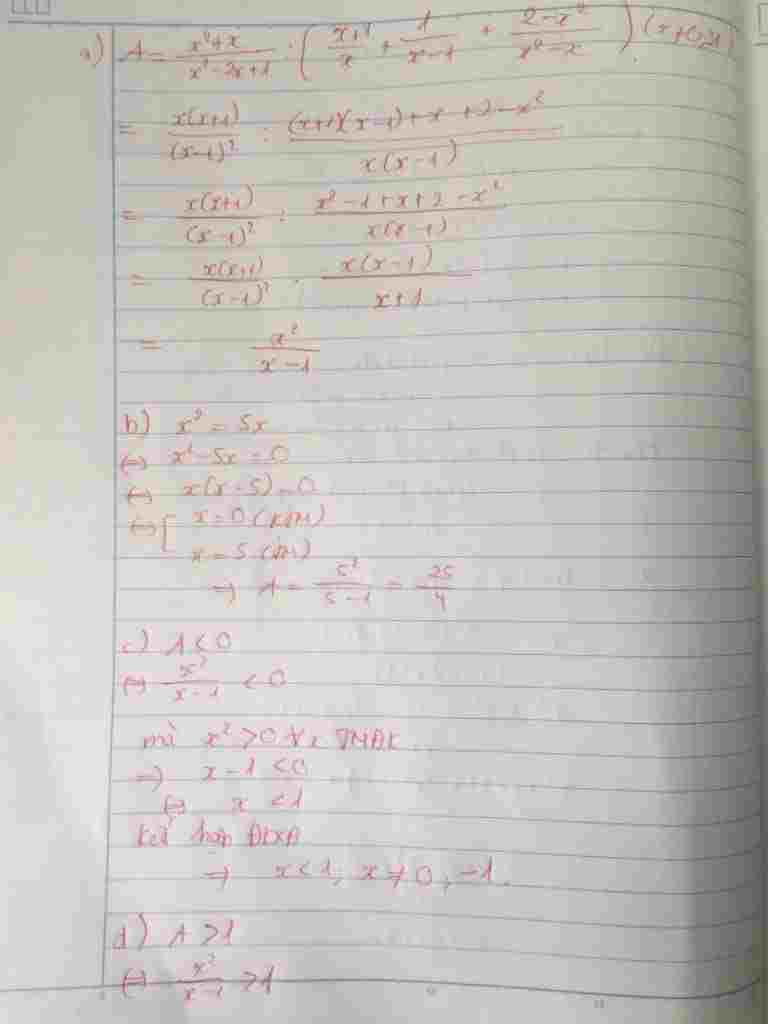 a) A = \frac{x²+x}{x²-2x+1} : ( \frac{x+1}{x} + \frac{1}{x-1} + \frac{2-x²}{x²-x} )
= \frac{x(x+1)}{(x-1)²} : \frac{(x+1)(x-1)+x+2-x²}{x(x-1)}
= \frac{x(x+1)}{(x-1)²} : \frac{x²-1+x+2-x²}{x(x-1)}
= \frac{x(x+1)}{(x-1)²} . \frac{x(x-1)}{x+1}
= \frac{x²}{x-1}
b) x² = 5x
⇔ x²-5x = 0
⇔ x(x-5) = 0
⇔ [ x = 0 (KTM)
x = 5 (TM)
⇒ A = \frac{5²}{5-1} = \frac{25}{4}
c) A < 0
⇔ \frac{x²}{x-1} < 0
mà x² > 0 ∀x TMĐK
⇒ x-1 < 0
⇔ x < 1
Kết hợp ĐKXĐ
⇒ x < 1, x ≠ 0, -1.
d) A > 1
⇔ \frac{x²}{x-1} > 1